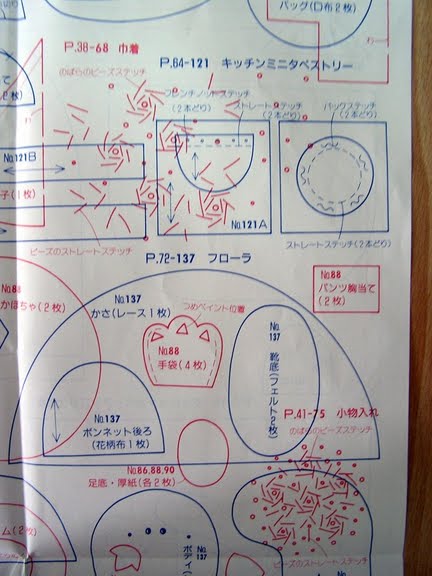 バッグ(口布2枚)
わ
P.38-68 巾着
のばらのビーズステッチ
P.64-121 キッチンミニタペストリー
フレンチノットステッチ
(2本どり)
ストレートステッチ
(2本どり)
バックステッチ
(2本どり)
て
2枚)
No.121B
子(1枚)
No.121A
ビーズのストレートステッチ
ストレートステッチ(2本どり)
P.72-137 フローラ
No.88
かぼちゃ(2枚)
No.137
かさ(レース1枚)
つめペイント位置
No.88
手袋(4枚)
No.
137
靴底(フェルト2枚)
No.88
パンツ胸当て
(2枚)
No.137
ボンネット後ろ
(花柄布1枚)
P.41-75 小物入れ
のばらのビーズステッチ
No.86.88.90
足底・厚紙(各2枚)
ム(2枚)
No.
137
ボディ
ビーズのストレートステッチ